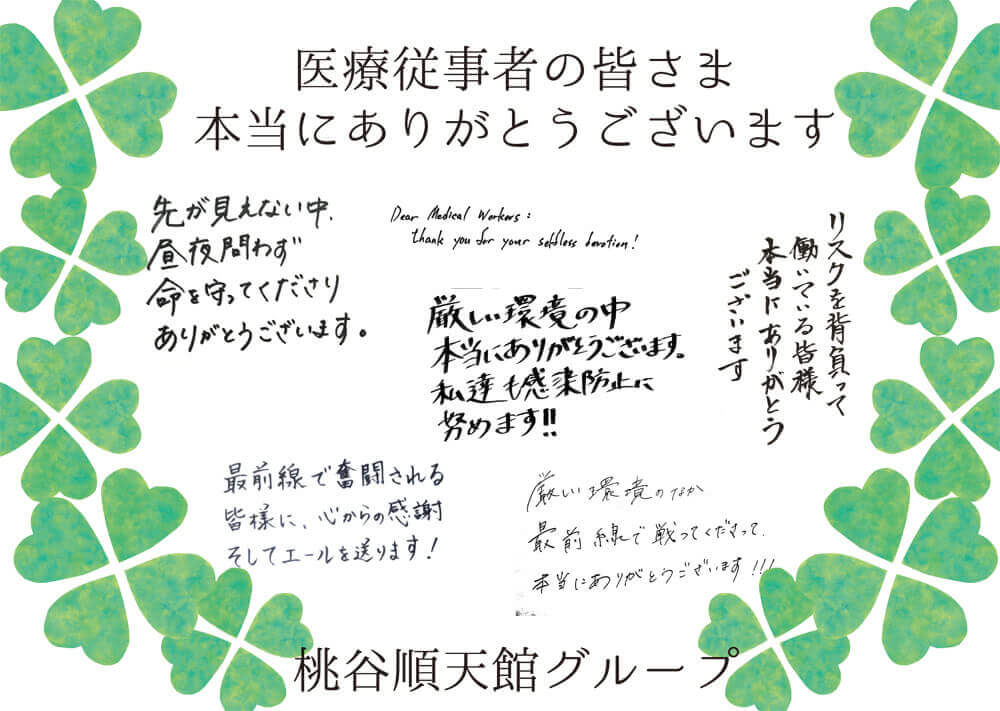 医療従事者の皆さま
本当にありがとうございます
先が見えない中、
昼夜問わず
命を守ってくださり
ありがとうございます。
Dear Medical Workers:
thank you for your selfless devotion!
リスクを背負って
働いている皆様
本当にありがとう
ございます
厳しい環境の中
本当にありがとうございます。
私達も感染防止に
努めます!!
最前線で奮闘される
皆様に、心からの感謝
そしてエールを送ります!
厳しい環境のなか
最前線で戦ってくださって、
本当にありがとうございます!!!
桃谷順天館グループ